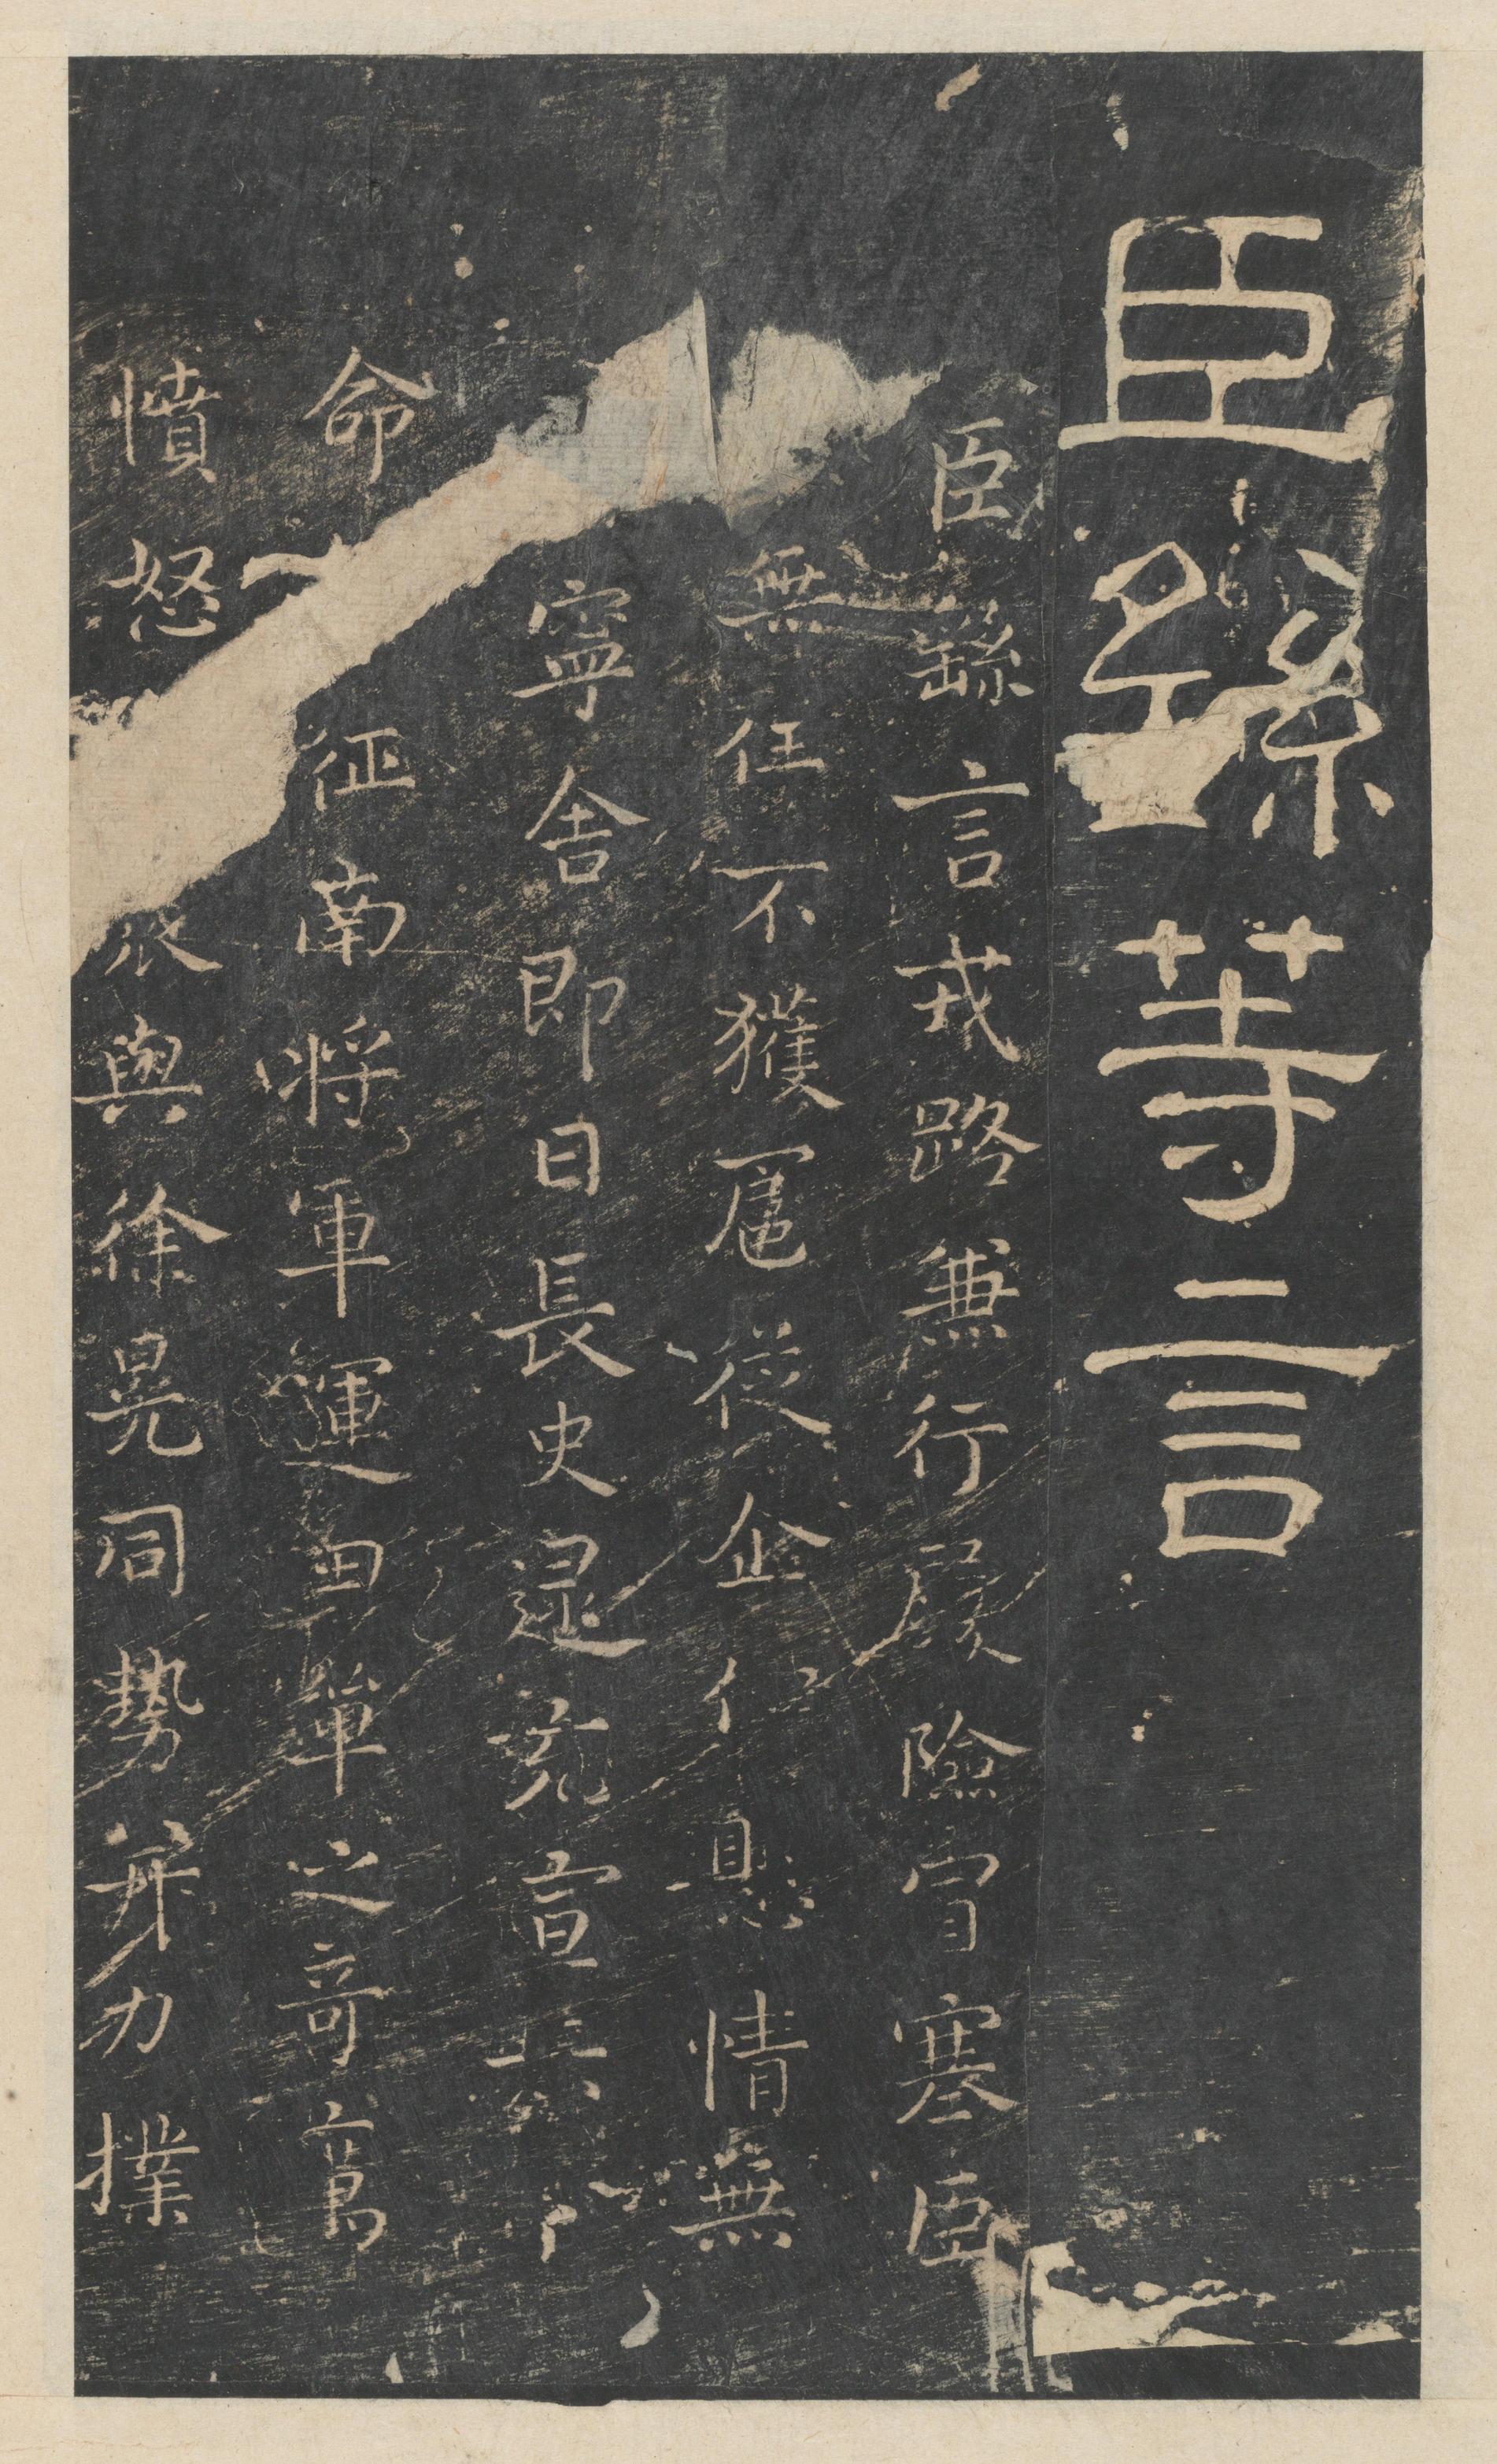 臣繇等言
臣繇言戎路兼行履險冒寒臣
無任不獲扈從企仁懸情無
寧舍即日長史逯充宣
命征南將軍運田單之奇萬
憤怒與徐晃同勢并力撲